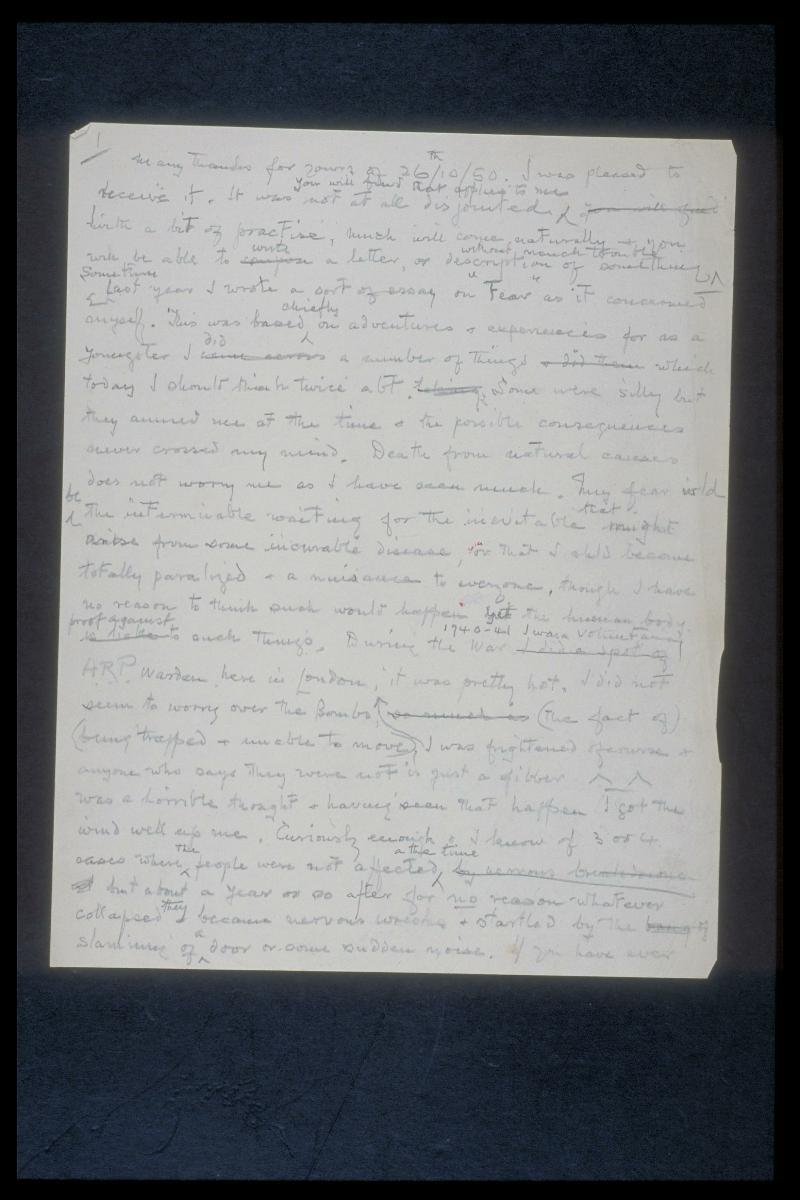 1
Many thanks for yours of 26th/10/50. I was pleased to
you will find that applies to me
receive it. It was not at all disjointed & you will find
with a bit of practise, much will come naturally & you
write without much trouble
will be able to compose a letter, or description of something
Sometime
Last year I wrote a sort of essay on "Fear" as it concerned
chiefly
myself. This was based on adventures & experiences for as a
did
youngster I came across a number of things & did them which
today I should think twice abt. Some were silly but
they amused me at the time & the possible consequences
never crossed my mind. Death from natural causes
does not worry me as I have seen much. My fear wld
be
the interminable waiting for the inevitable that might
arise from some incurable disease, or that I shld become
totally paralized & a nuisance to everyone, though I have
no reason to think such would happen yet the human body
proof against 1940-41 I was a Voluntary
is liable to such things. During the War I did a spot of
ARP Warden here in London, it was pretty hot. I did not
seem to worry over the Bombs, so much as (the fact of)
(being trapped & unable to move) I was frightened ofcourse &
anyone who says they were not is just a fibber
was a horrible thought & having seen that happen I got the
wind well up me. Curiously enough I know of 3 or 4
the at the time
cases where people were not affected by nervous breakdowns
but about a year or so after for no reason whatever
they
collapsed & became nervous wrecks & startled by the bang of
a
slamming of door or some sudden noise. If you have ever